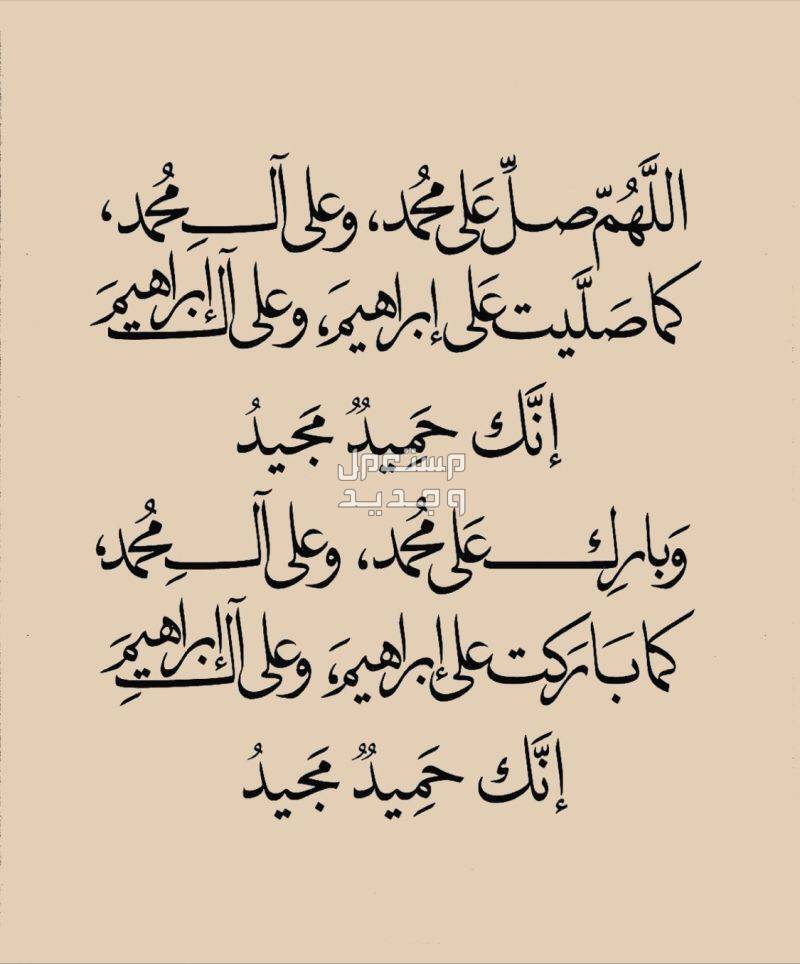 اللَّهُمّ صلِّ عَلى مُحمد، وعلى آلِ مُحمد،
كما صَلَّيت عَلى إبراهيمَ، وعلى آل إبراهيمَ
إنَّك حَمِيدٌ مَجيدُ
مستعمل
وجديد
وَبارِك عَلى مُحمد، وعلى آلِ مُحمد،
كما بَاركت على إبراهيمَ، وعلى آلِ إبراهيمَ
إنَّك حَمِيدٌ مَجيدُ